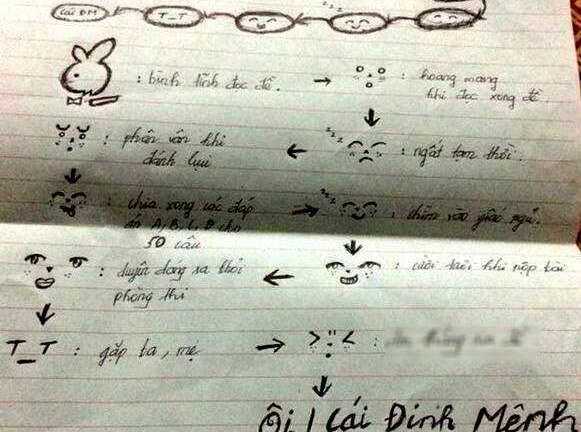 Cái ĐM
T_T
zzz
zzz
: bình tĩnh đọc đề.
: hoang mang
khi đọc xong đề.
: phân vân khi
đánh lụi
zzz
: ngất tạm thời.
: chia xong các đáp
án A, B, C, D cho
50 câu
zzz
: chìm vào giấc ngủ.
: duyên dáng ra khỏi
phòng thi
: cười tươi khi nộp bài
T_T : gặp ba, mẹ
:
Ôi ! Cái Định Mệnh